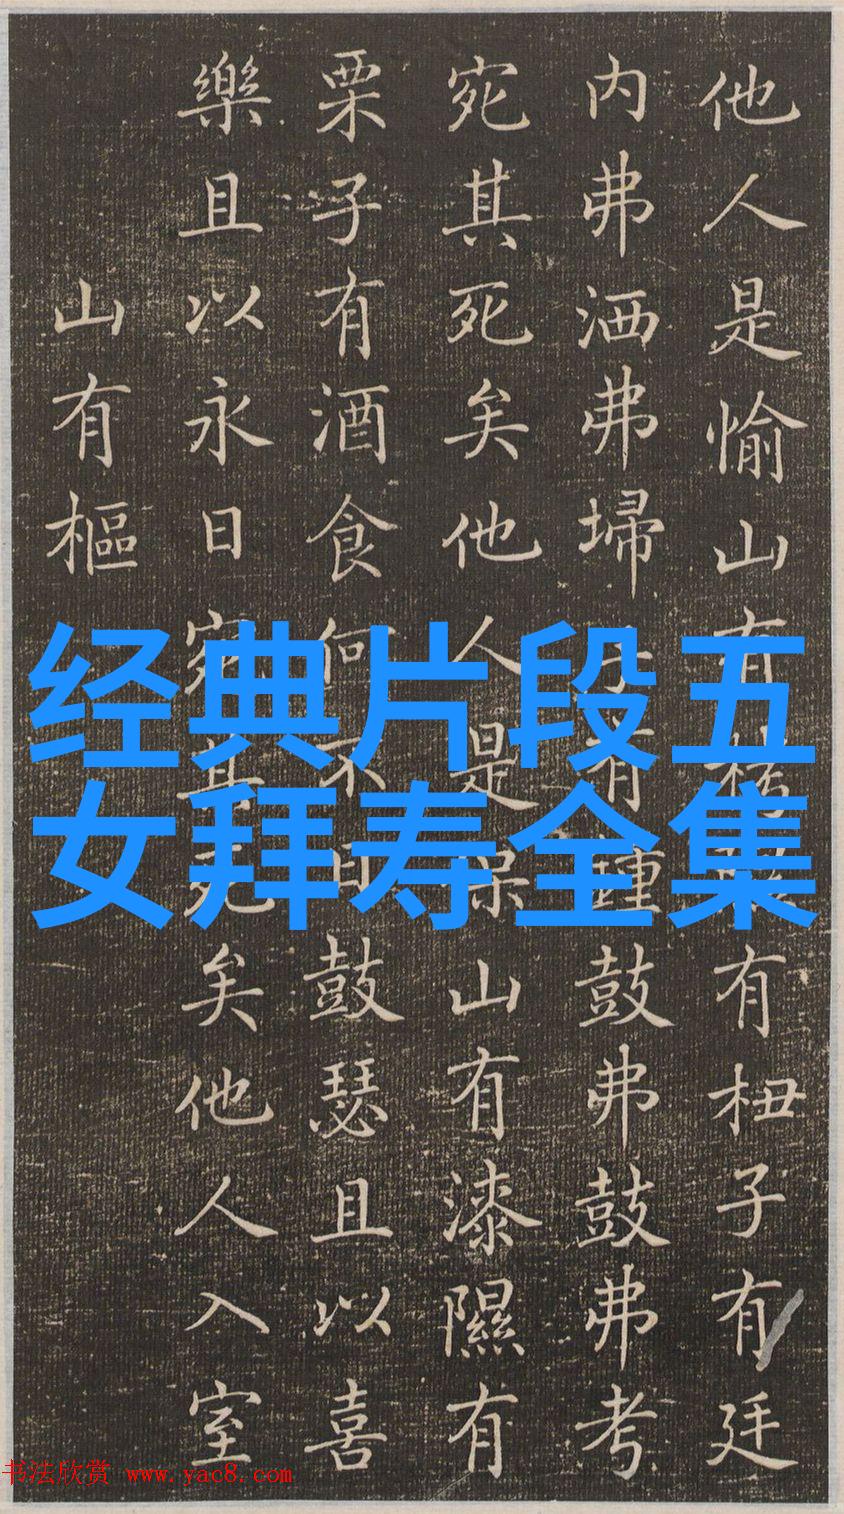 他人是愉山有栲有杻子有廷
内弗洒弗埽子有鍾鼓弗鼓弗考
宛其死矣他人是保山有漆隰有
栗子有酒食何不日鼓瑟且以喜
樂且以永日宛其死矣他人入室
山有樞
经典片段五
女拜寿全集
书法欣赏 www.yac8.com